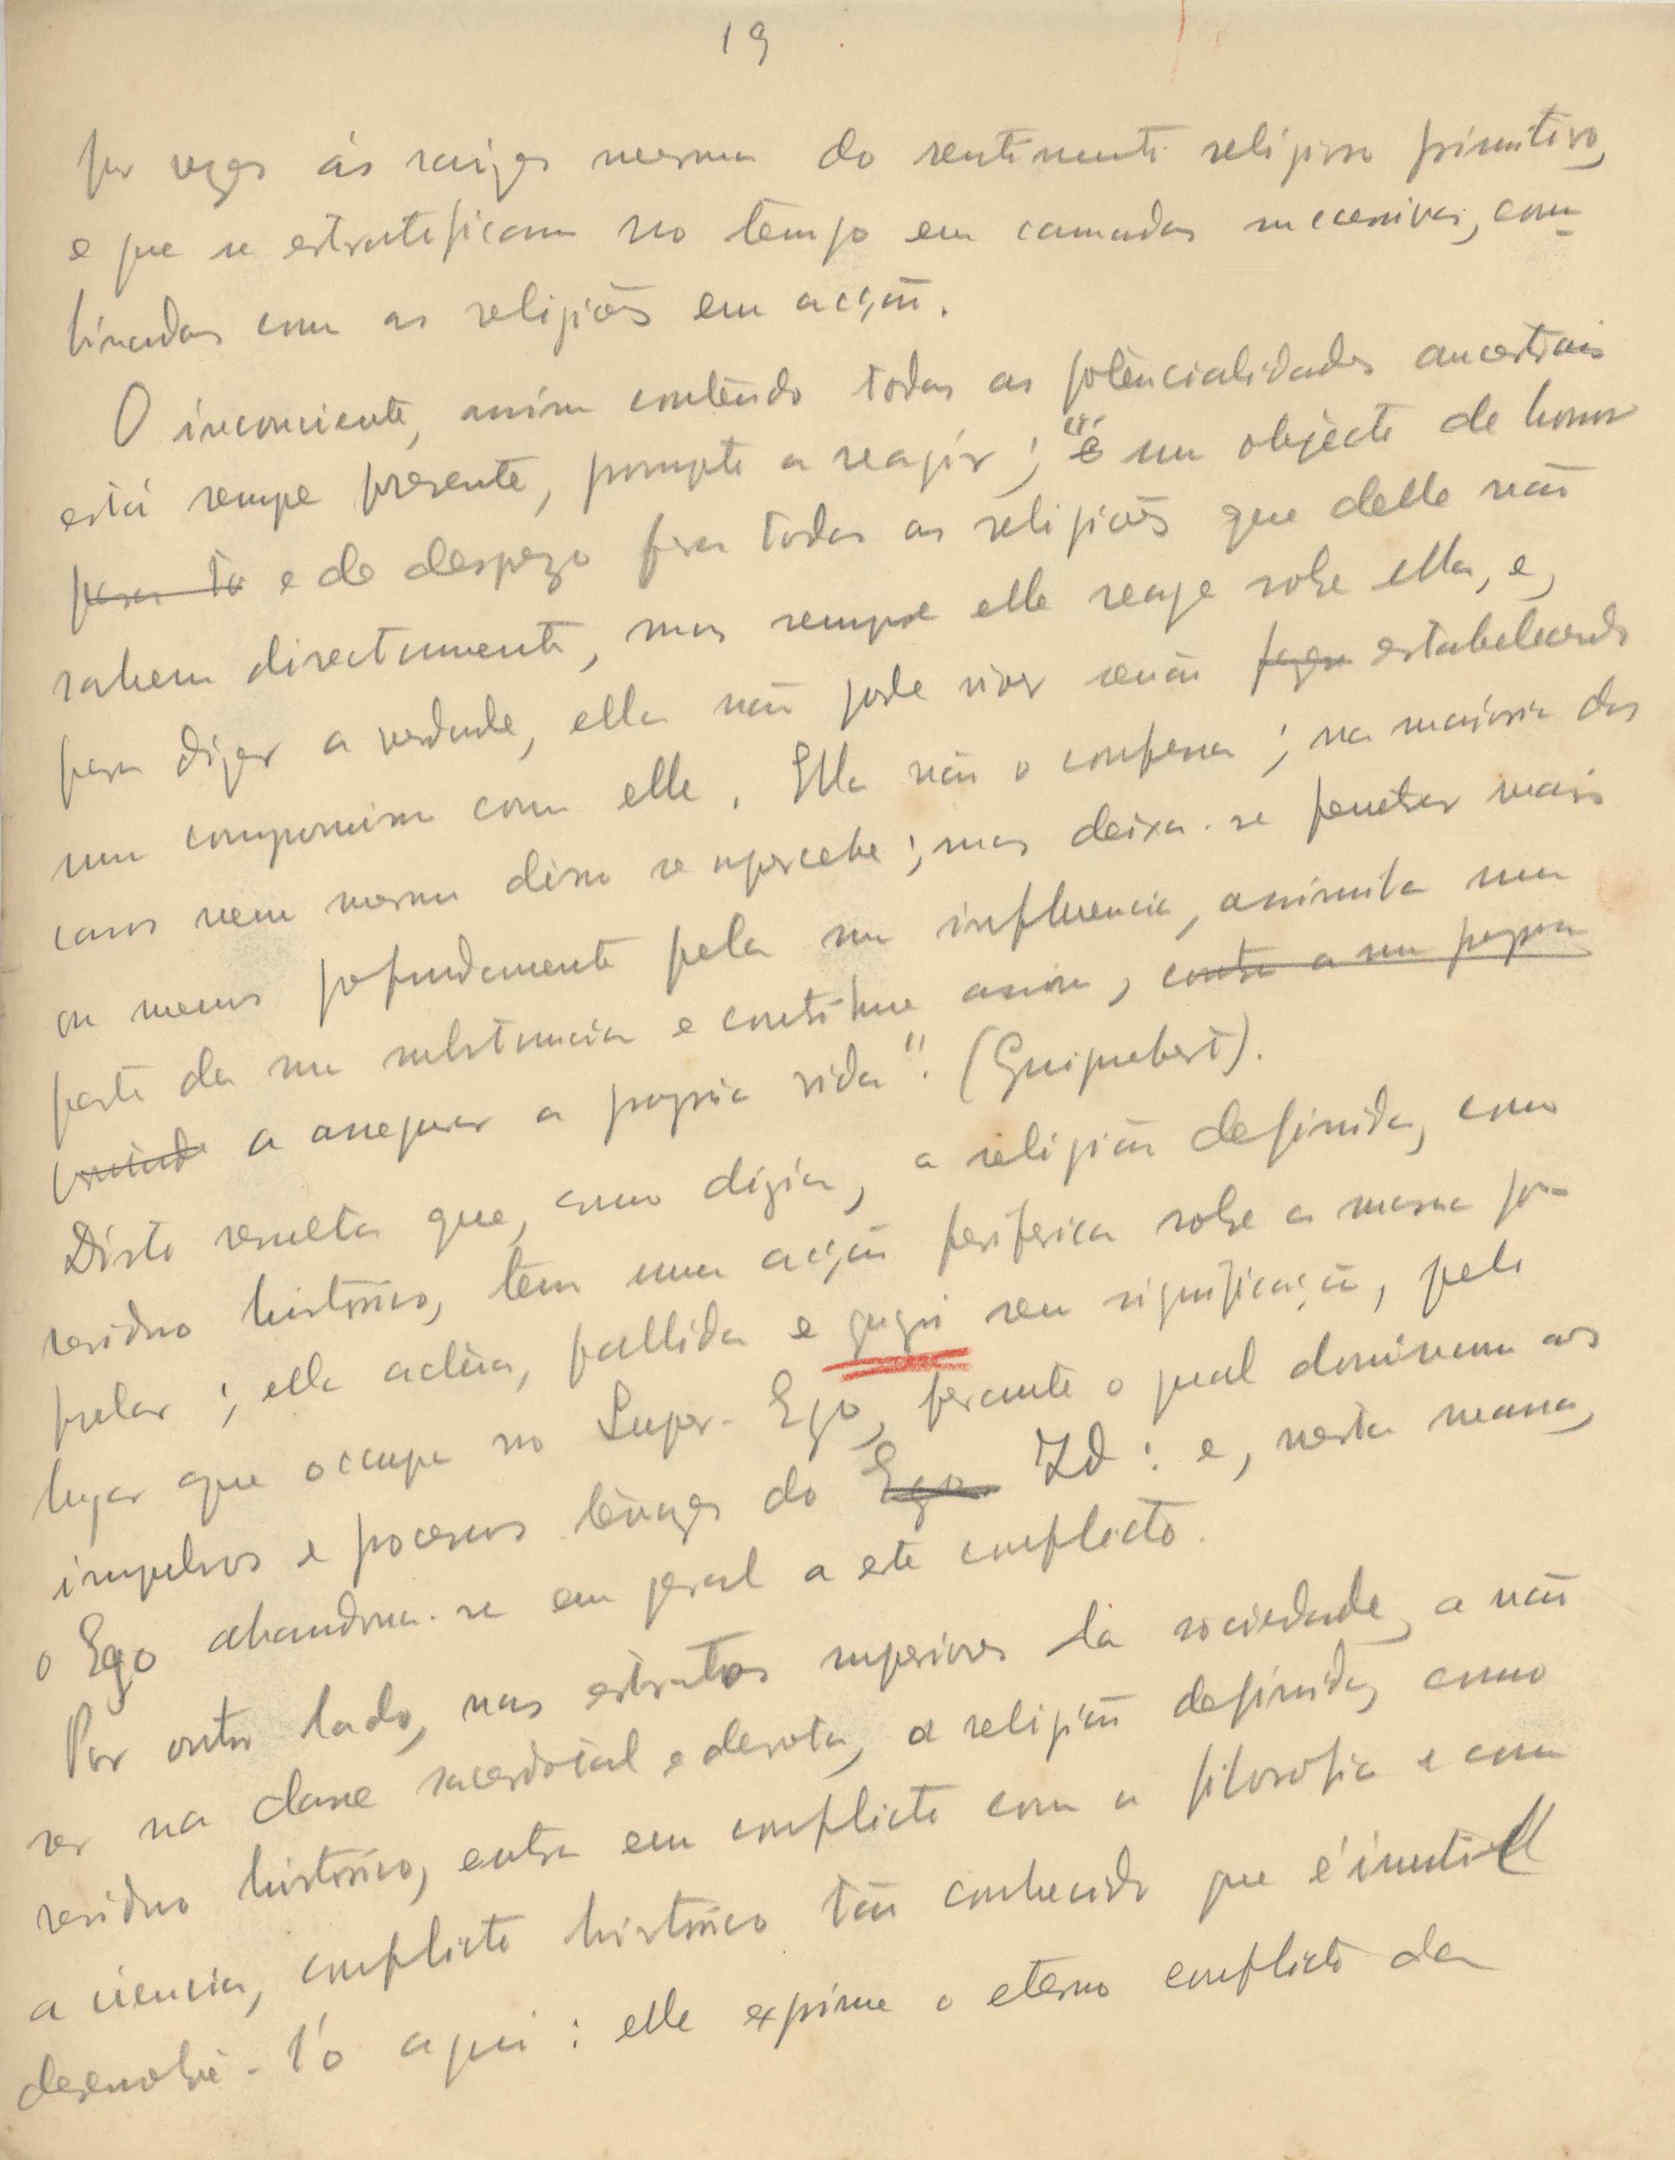 19
por vezes ás raizes mesmo do sentimento religioso primitivo,
e que se estratificam no tempo em camadas successivas, com-
binadas com as religiões em acção.
O inconsciente, assim contendo todas as potencialidades ancestrais
está sempre presente, prompto a reagir; "é um objecto de horror
para to e de desprezo para todas as religiões que delle não
sahem directamente, mas sempre elle reage sobre ella, e,
para dizer a verdade, ella não pode viver senão fazen estabelecendo
um compromisso com elle. Ella não o confessa; na maioria dos
casos nem mesmo disso se apercebe; mas deixa-se penetrar mais
ou menos profundamente pela sua influencia, assimila uma
parte da sua substancia e continua assim, contra a sua propria
vontade a assegurar a propria vida". (Guignebert).
Disto resulta que, como dizia, a religião definida, como
residuo historico, tem uma acção periferica sobre a massa po-
pular; ella actúa, pallida e quasi sem significação, pelo
lugar que occupa no Super-Ego, perante o qual dominam os
impulsos e processos tenazes do Ego Id: e, nesta massa,
o Ego abandona-se em geral a este conflicto.
Por outro lado, nas estratos superiores da sociedade, a não
ser na classe sacerdotal e devota, a religião definida, como
residuo historico, entra em conflicto com a filosofia e com
a sciencia, conflicto historico tão conhecido que é inutil
desenvolvê-l'o aqui: elle exprime o eterno conflicto da